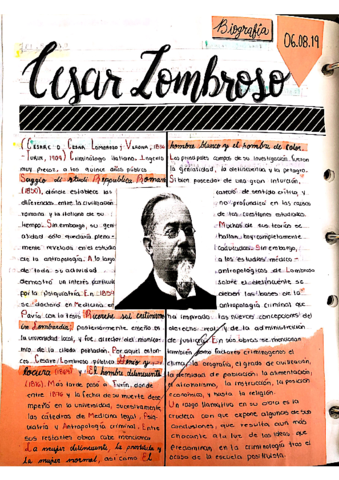 Biografía
06.08.19
Cesar Lombroso
(Cesare o César Lombroso; Verona, 1835-
Turín, 1909) Criminólogo italiano. Ingenio
muy precoz, a los quince años publicó
Saggio di studi Republica Romana
(1850), donde establece las
diferencias entre la civilización
romana y la italiana de su
tiempo. Sin embargo, su gen
ialidad sólo quedaría plena-
mente revelada en el estudio
de la antropología. A lo largo
de toda su actividad
demostró un interés particul
por la psiquiatría. En 1859
se doctoró en Medicina en
Pavía con la tesis Ricerche sul cretinismo
in Lombardia; posteriormente enseñó en
la universidad local, y fue director del manico-
mio de la citada población. Por aquel enton-
ces, Cesare Lombroso publicó Genio y
locura (1864) y El hombre delincuente
(1876). Más tarde pasó a Turín, donde
entre 1876 y la fecha de su muerte dese-
mpeñó en la universidad, sucesivamente
las cátedras de Medicina legal, Psiq-
uiatría y Antropología criminal. Entre
sus restantes obras cabe mencionar
La mujer delincuente, la prostituta y
la mujer normal, así como El
hombre blanco y el hombre de color.
Los principales campos de su investigación fueron
la genialidad, la delincuencia y la pelagra.
Si bien poseedor de una gran intuición,
careció de sentido crítico, y
no profundizó en las raíces
de las cuestiones estudiadas.
Muchas de sus teorías se
hallan hoy completamente
caducadas. Sin embargo,
a los estudios médico-
antropológicos de Lombroso
sobre el delincuente se
deben las bases de la
antropología criminal que
ha inspirado las nuevas concepciones del
derecho penal y de la administración
de justicia. En sus libros se mencionan
también como factores criminógenos el
clima, la orografía, el grado de civilización,
la densidad de población, la alimentación,
el alcoholismo, la instrucción, la posición
económica y hasta la religión.
Un rasgo llamativo en su obra es la
crudeza con que expone algunas de sus
conclusiones, que resulta aún más
chocante a la luz de las ideas que
predominan en la criminología tras el
ocaso de la escuela positivista.